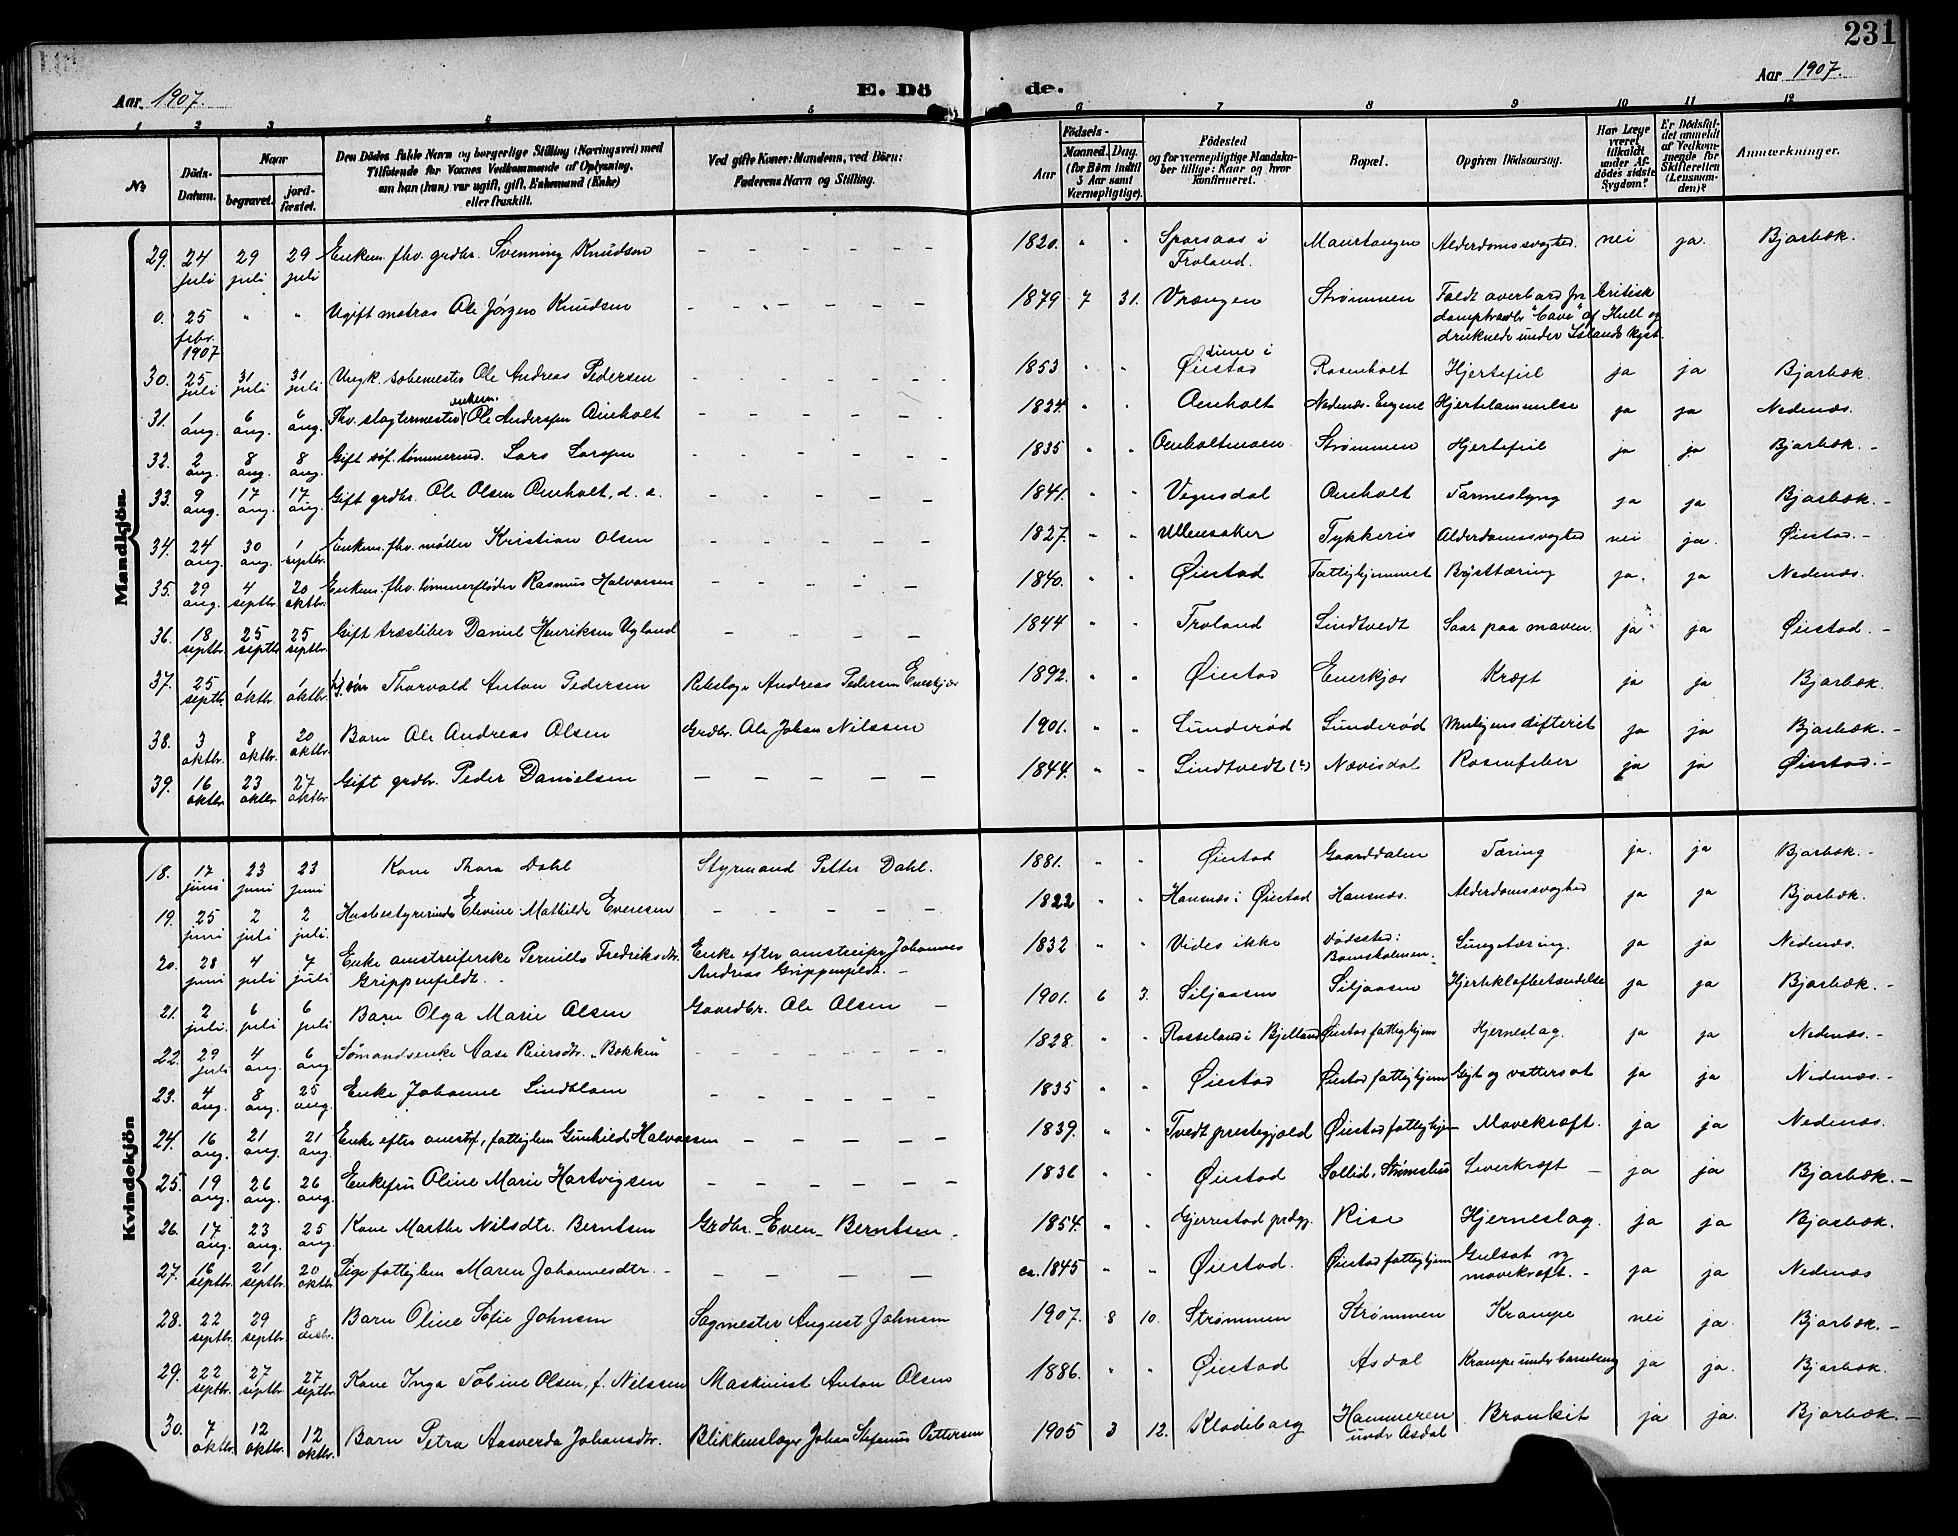 231
Aar 1907.
E. Dö
de.
Aar 1907.
1 2 3 5 5 6 7 8 9 10 11 12
No
Döds-Datum.
Naar
begravet.
jord-fæstet.
Den Dödes fulde Navn og borgerlige Stilling (Næringsvei) med
Tilføiende for Voxnes Vedkommende af Oplysning,
om han (hun) var ugift, gift, Enkemand (Enke)
eller fraskilt.
Ved gifte Koner: Mandens, ved Börn:
Faderens Navn og Stilling.
Födsels-
Aar
Maaned. Dag.
(for Börn indtil
5 Aar samt
Værnepligtige).
Födested
og for værnepligtige Mandska-
ber tillige: Naar og hvor
konfirmeret.
Bopæl.
Opgiven Dödsaarsag.
Har Læge
været
tilkaldt
under Af-
dödes sidste
Sygdom?
Er Dödsfal-
det anmeldt
af Vedkom-
mende for
Skifteretten
(Lensman-
den)?
Anmærkninger.
Mandkjön.
29. 24 juli 29 juli 29 juli Enkem. fhv. grdbr. Svenning Knudsen – – – – – – 1820. " " Sporsaas i Froland. Maurtangen Alderdomssvaghed. nei ja. Bjorbæk.
0. 25 febr. 1907 " " Ugift matros Ole Jørgen Knudsen – – – – – – 1879 7 31. Vrængen Strømmen Faldt overbord fra britisk
damptrawler "Cave" af Hull og
druknede under Islands kyst.
30. 25 juli 31 juli 31 juli Ungk. Ole Andreas Pedersen – – – – – – 1853 " " i Øiestad Rosenholt Hjertefeil ja ja Bjorbæk.
31. 1 aug. 6 aug. 6 aug. Fhv. slagtermester enkem. Ole Anderssen Omholt – – – – – – 1824. " " Omholt Nedenæs Engene Hjertelammelse ja ja Nedenæs.
32. 2 aug. 8 aug. 8 aug. Gift søf. tømmermd. Lars Larsen – – – – – – 1835 " " Omholtmoen Strømmen Hjertefeil ja ja Bjorbæk. –
33. 9 aug. 17 aug. 17 aug. Gift grdbr. Ole Olsen Omholt, d. e. – – – – – – 1841. " " Vegusdal Omholt Tarmeslyng ja ja Bjorbæk. –
34. 24 aug. 30 aug. 1 septbr. Enkem. fhv. møller Kristian Olsen – – – – – – 1827. " " Ullensaker Tykkeris Alderdomssvaghed nei ja. Øiestad. –
35. 29 aug. 4 septbr. 20 oktbr. Enkem. fhv. tømmerfløder Rasmus Halvorsen – – – – – 1840. " " Øiestad Fattighjemmet Brysttæring ja. ja Nedenæs.
36. 18 septbr. 25 septbr 25 septbr. Gift træsliber Daniel Henriksen Ugland – – – – – 1844 " " Froland Lindtvedt Saar paa maven. ja ja Øiestad. –
37. 25 septbr 1 oktbr. 1 oktbr. Thorvald Anton Pedersen Rebslager Andreas Pedersen Enerkjær 1892. " " Øiestad Enerkjær Kræft ja ja Bjorbæk.
38. 3 oktbr. 8 oktbr. 20 oktbr. Barn Ole Andreas Olsen Grdbr. Ole Johan Nilssen 1901. " " Lunderød Lunderød difterit ja ja Bjorbæk. –
39. 16 oktbr. 23 oktbr. 27 oktbr. Gift grdbr. Peder Danielsen – – – – – 1844. " " Lindtvedt (?) Nævisdal Rosenfeber ja ja Øiestad. –
Kvindekjön
18. 17 juni 23 juni 23 juni Kone Thora Dahl Styrmand Petter Dahl. 1881. " " Øiestad Gaarddalen Tæring ja. ja Bjorbæk. –
19. 25 juni 2 juli 2 juli. Husbestyrerinde Elevine Mathilde Evensen – – – – – 1822 " " Hansnæs i Øiestad Hansnæs. Alderdomssvaghed ja ja Bjorbæk.
20. 28 juni 4 juli 7 juli Enke omstreiferske Pernille Fredriksdtr. Grippenfeldt. – Enke efter omstreifer Johannes Andreas Grippenfeldt. – 1832 " " Vides ikke Dødssted: Lungetæring. ja ja Nedenæs.
21. 2 juli. 6 juli 6 juli Barn Olga Marie Olsen Gaardbr. Ole Olsen – 1901. 6 3. Siljaasen Siljaasen Hjerteklafbetændelse ja ja Bjorbæk. –
22. 29 juli 4 aug. 6 aug. Sømandsenke Aase Reiersdtr. "Bakken" – – – – – – 1828. " " Rosseland i Bjelland Øiestad fattighjem Hjerneslag. ja ja Nedenæs. –
23. 4 aug. 8 aug. 25 aug. Enke Johanne Lindblom – – – – – – 1835 " " Øiestad Øiestad fattighjem Gigt og vattersot ja ja Nedenæs. –
24. 16 aug. 21 aug. 21 aug. Enke efter omstrf, fattiglem Gunhild Halvorsen – – – – – 1839. " " Tvedt prestegjæld Øiestad fattighjem – Mavekræft. ja ja Nedenæs.
25. 19 aug. 26 aug. 26 aug. Enkefru Oline Marie Hartvigsen – – – – – – 1836 " " Øiestad Sollid, Strømsbu Leverkræft – ja ja Bjorbæk. –
26. 17 aug. 23 aug. 25 aug. Kone Marthe Nilsdtr. Berntsen Grdbr. Even Berntsen. 1854. " " Gjerrestad prdgj. Rise Hjerneslag. ja ja Bjorbæk.
27. 16 septbr. 21 septbr. 20 oktbr. Pige fattiglem Maren Johannesdtr. – – – – – – ca. 1845 " " Øiestad. Øiestad fattighjem Gulsot og mavekræft. – ja ja Nedenæs
28. 22 septbr. 29 septbr. 8 Barn Oline Sofie Johnsen Sagmester August Johnsen 1907. 8 10. Strømmen Strømmen Krampe nei ja. Bjorbæk. –
29. 22 septbr. 27 septbr. 27 septbr. Kone Inga Tobine Olsen, f. Nilssen Maskinist Anton Olsen 1886. " " Øiestad Asdal Krampe under barselseng ja ja. Bjorbæk.
30. 7 oktbr. 12 oktbr. 12 oktbr. Barn Petra Aasverda Johansdtr. Blikkenslager Johan Stefanus Pettersen 1905 3 12. Klodeborg Hammeren under Asdal Bronkit ja ja. Bjorbæk. –